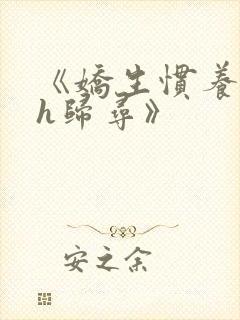 《嬌生慣養
h歸尋》
安之余